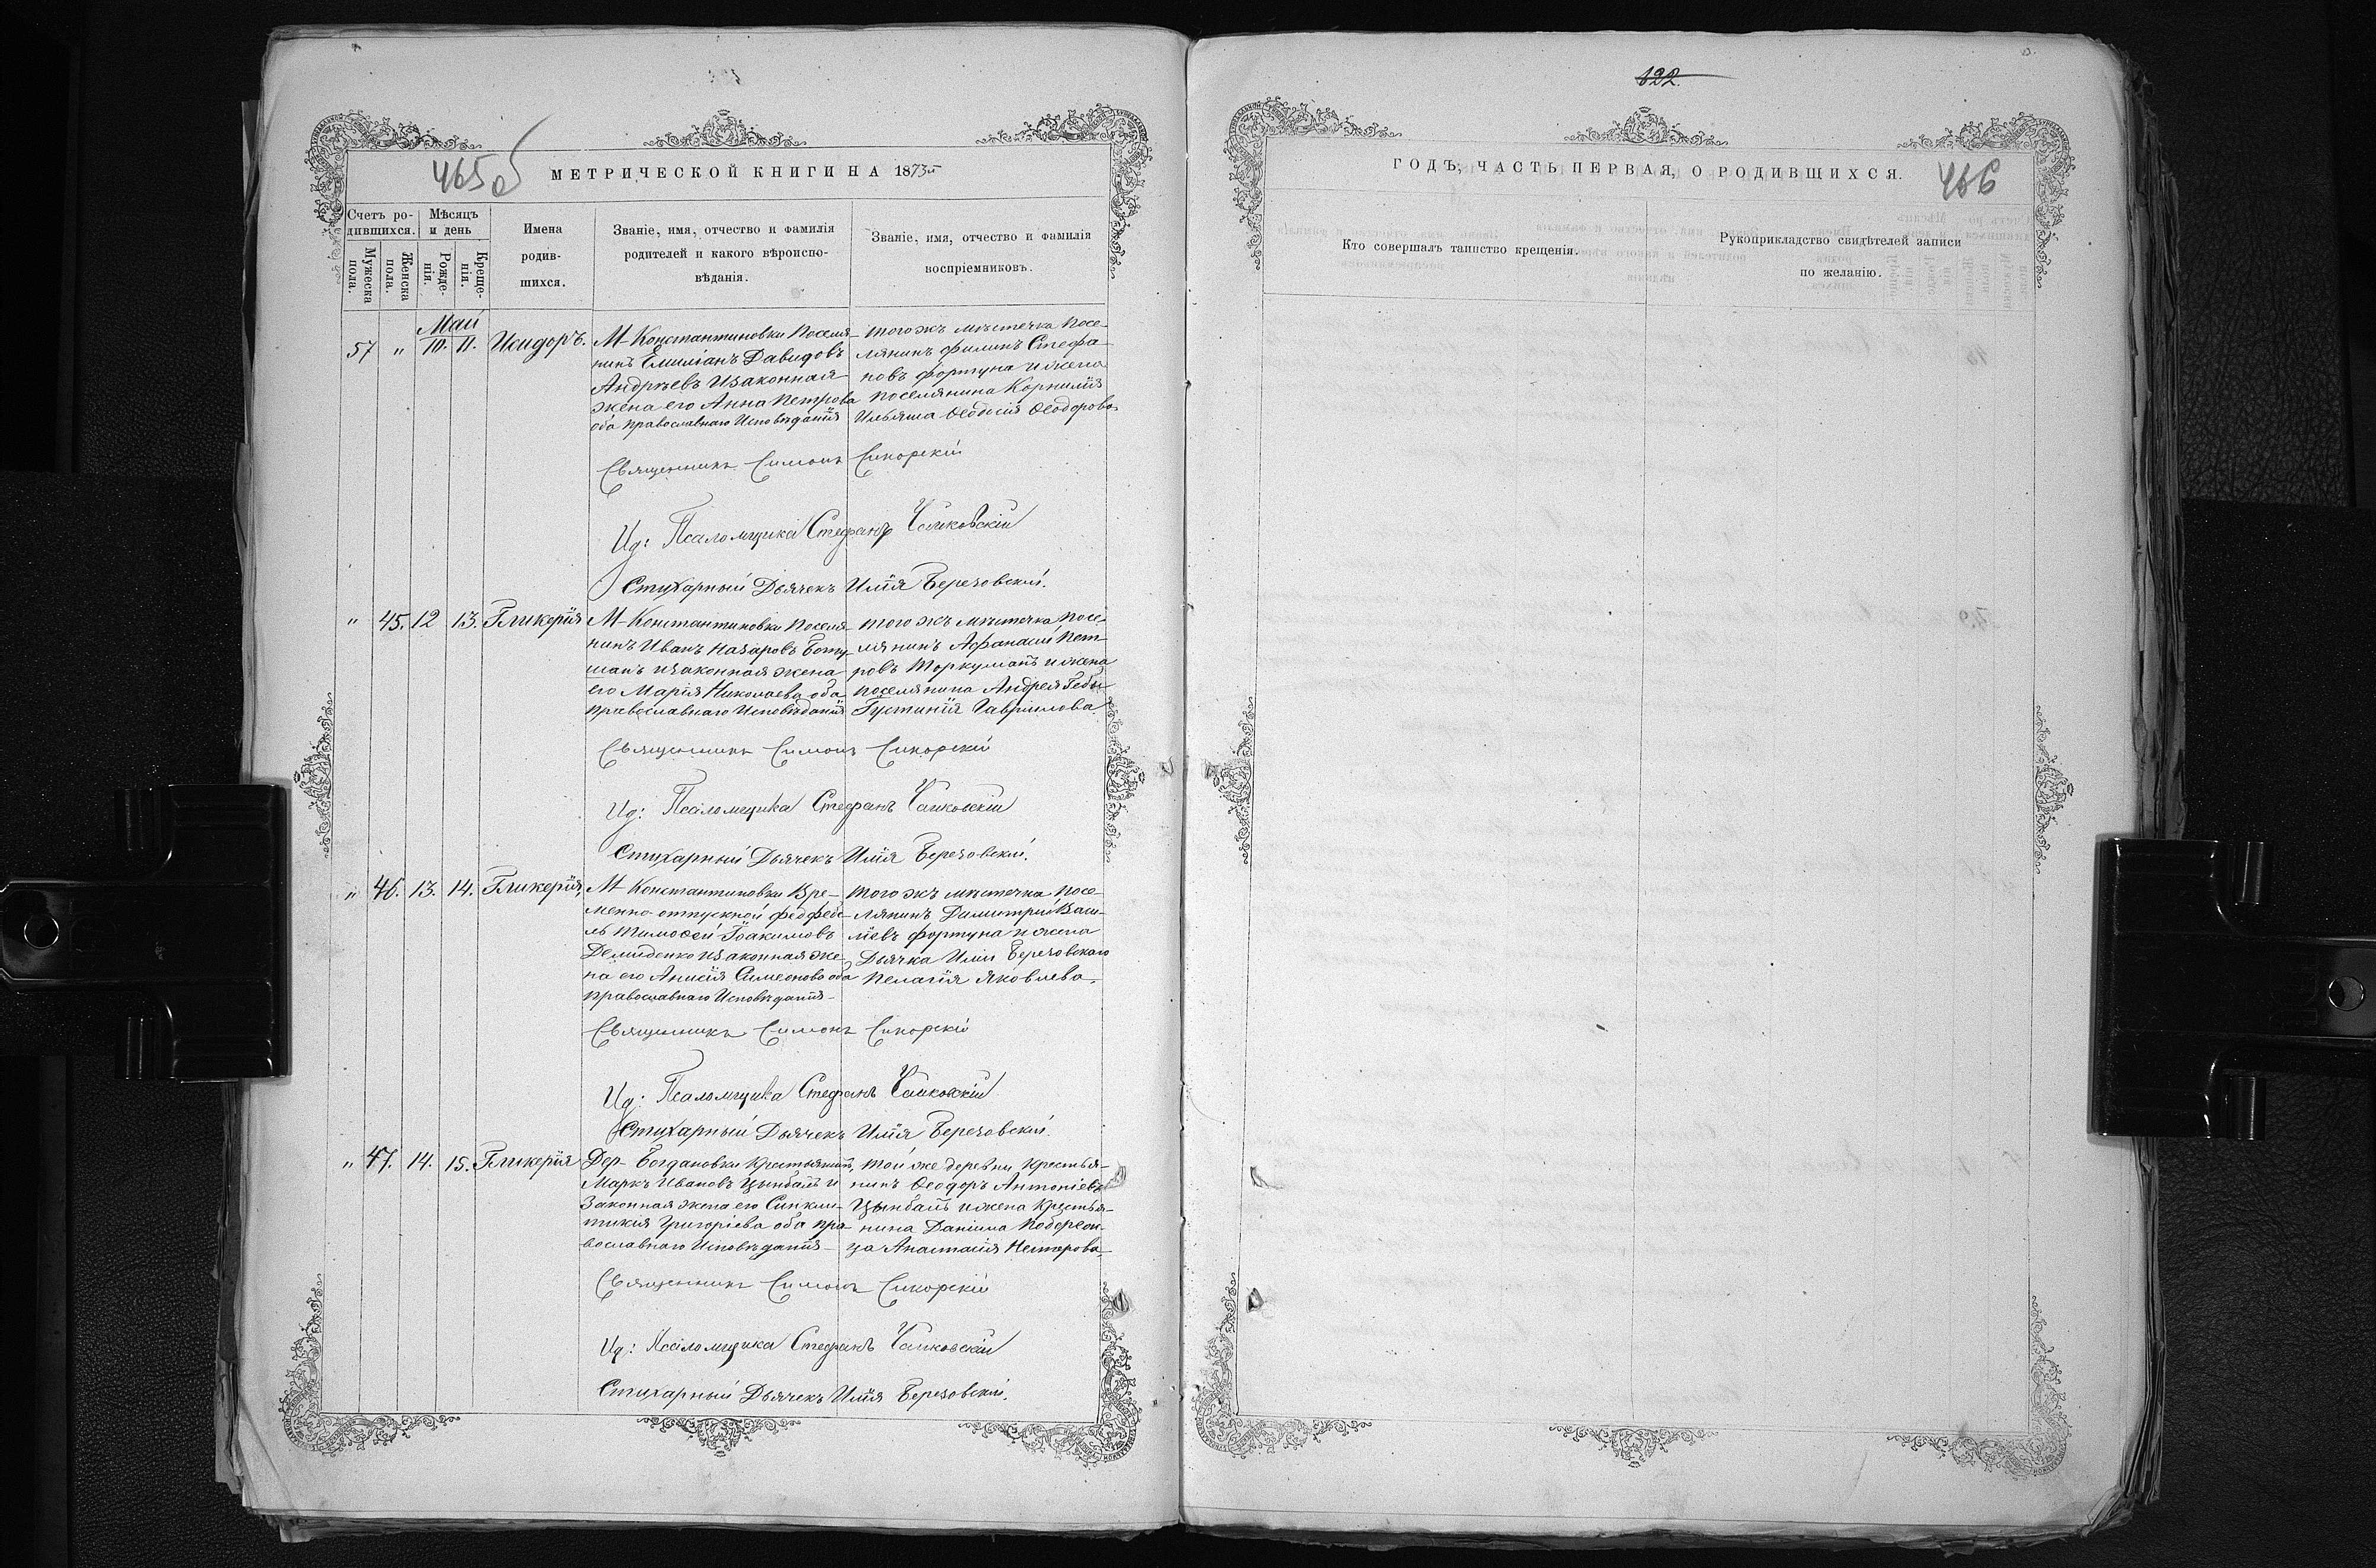 465 об
МЕТРИЧЕСКОЙ КНИГИ НА 1873й
Счетъ ро-
дившихся.
Мѣсяцъ
и день
Мужеска
пола.
Женска
пола.
Рожде-
нія.
Креще-
нія.
Имена
родив-
шихся.
Званіе, имя, отчество и фамилія
родителей и какого вѣроиспо-
вѣданія.
Званіе, имя, отчество и фамилія
воспріемниковъ.
Май
57 " 10. 11. Исидоръ.
М- Константиновки Поселя-
нинъ Емиліанъ Давидовъ
Андрѣевъ изаконная
жена его Анна Петрова
оба православнаго Исповѣданія
того жъ мѣстечка Посе-
лянинъ Филипъ Стефа-
новъ Фортуна и жена
поселянина Корнилія
Ильяша Ѳеодосія Ѳеодорова
Священникъ Симонъ Сикорскій
Ид: Псаломщика Стефанъ Чайковскій
Стихарный Дьячекъ Илія Березовскій.
" 45. 12 13. Гликерія
М- Константиновки Поселя-
нинъ Иванъ Назаровъ Боту-
шанъ изаконная жена
его Марія Николаева оба
православнаго Исповѣданія
того жъ мѣстечка Посе-
лянинъ Афанасій Пет-
ровъ Торкуманъ и жена
поселянина Андрея
Густинія Гаврилова
Священникъ Симонъ Сикорскій
Ид: Псаломщика Стефанъ Чайковскій
Стихарный Дьячекъ Илія Березовскій.
" 46. 13. 14. Гликерія,
М- Константиновки Вре-
менно-отпускной Фелдфебе-
ль Тимоѳей Іоакимовъ
Демиденко изаконная же-
на его Анисія Симеонова оба
православнаго Исповѣданія-
того жъ мѣстечка посе-
лянинъ Димитрій Васи-
ліевъ Фортуна и жена
Дьячка Иліи Березовскаго
Пелагія Яковлева.
Священникъ Симонъ Сикорскій
Ид: Псаломщика Стефанъ Чайковскій
Стихарный Дьячекъ Илія Березовскій.
" 47. 14. 15. Гликерія
Дер- Богдановки Крестьянинъ
Маркъ Ивановъ Цынбалъ и
Законная жена его Синкли-
тикія Григоріева оба пра-
вославнаго Исповѣданія-
той же деревни Крестья-
нинъ Ѳеодоръ Антоніевъ
Цынбалъ и жена Крестья-
нина Даніила
Анастасія Нестерова
Священникъ Симонъ Сикорскій
Ид: Псаломщика Стефанъ Чайковскій
Стихарный Дьячекъ Илія Березовскій.
122.
ГОДЪ, ЧАСТЬ ПЕРВАЯ, О РОДИВШИХСЯ.
466
Кто совершалъ таинство крещенія.
Рукоприкладство свидѣтелей записи
по желанію.